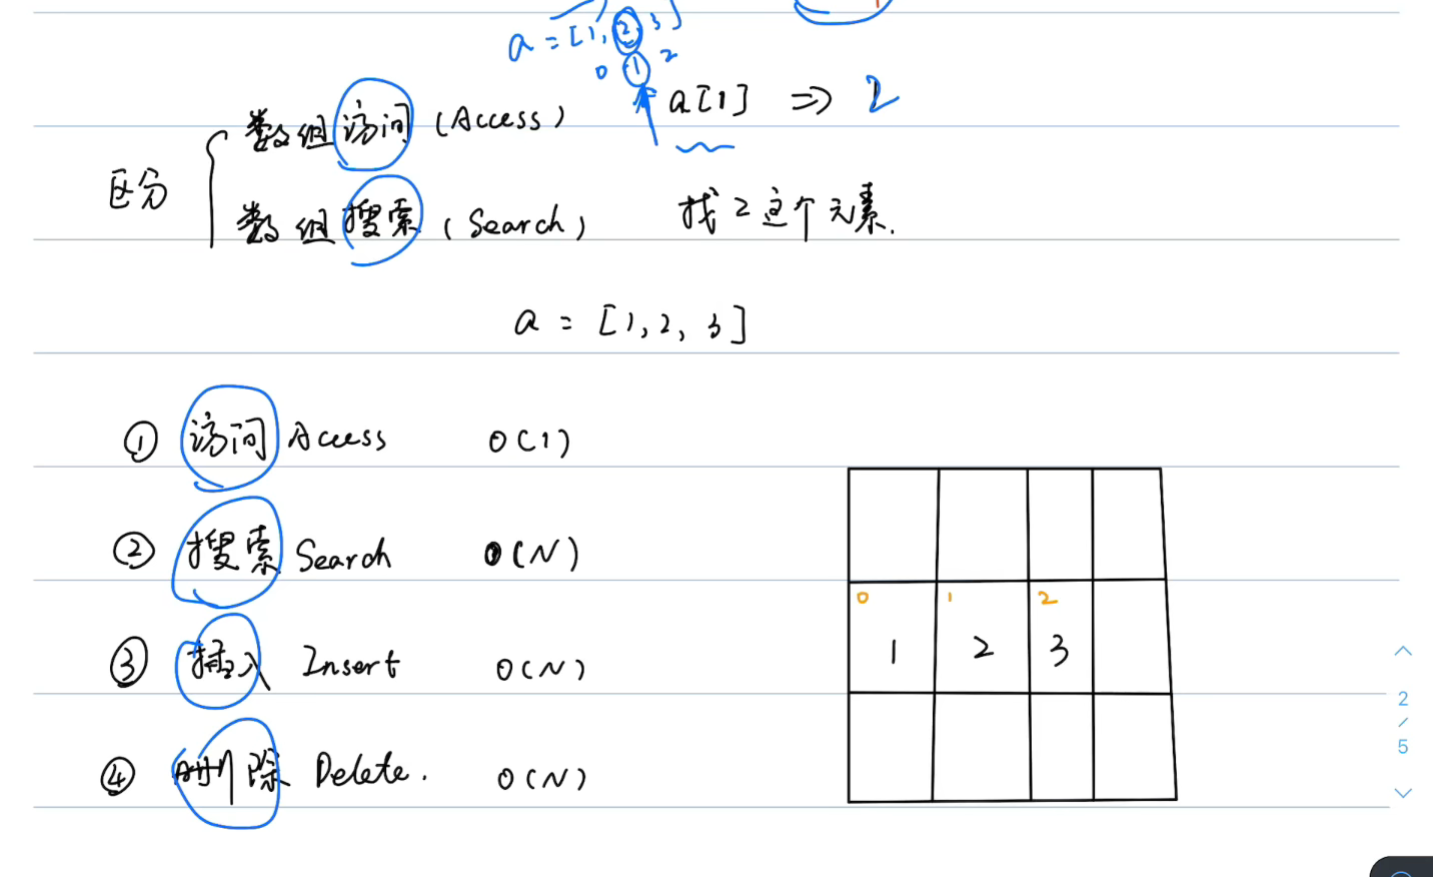 a = [1, 2, 3]
0 1 2
a[1] => 2
区分
数组访问 (Access)
数组搜索 (Search) 找2这个元素.
a = [1, 2, 3]
① 访问 Access O(1)
② 搜索 Search O(N)
③ 插入 Insert O(N)
④ 删除 Delete. O(N)
0 1 2
1 2 3
2
/
5